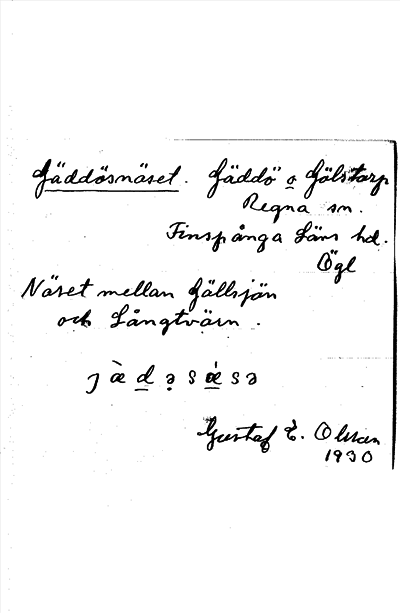 Gäddösnäset. Gäddö o Gölstorp
Regna sn.
Finspånga Läns hd.
Ögl
Näset mellan Gällsjön
och Långtvärn.
j æ̀ d ə s ǽ s ə
Gustaf E. Olsson
1930